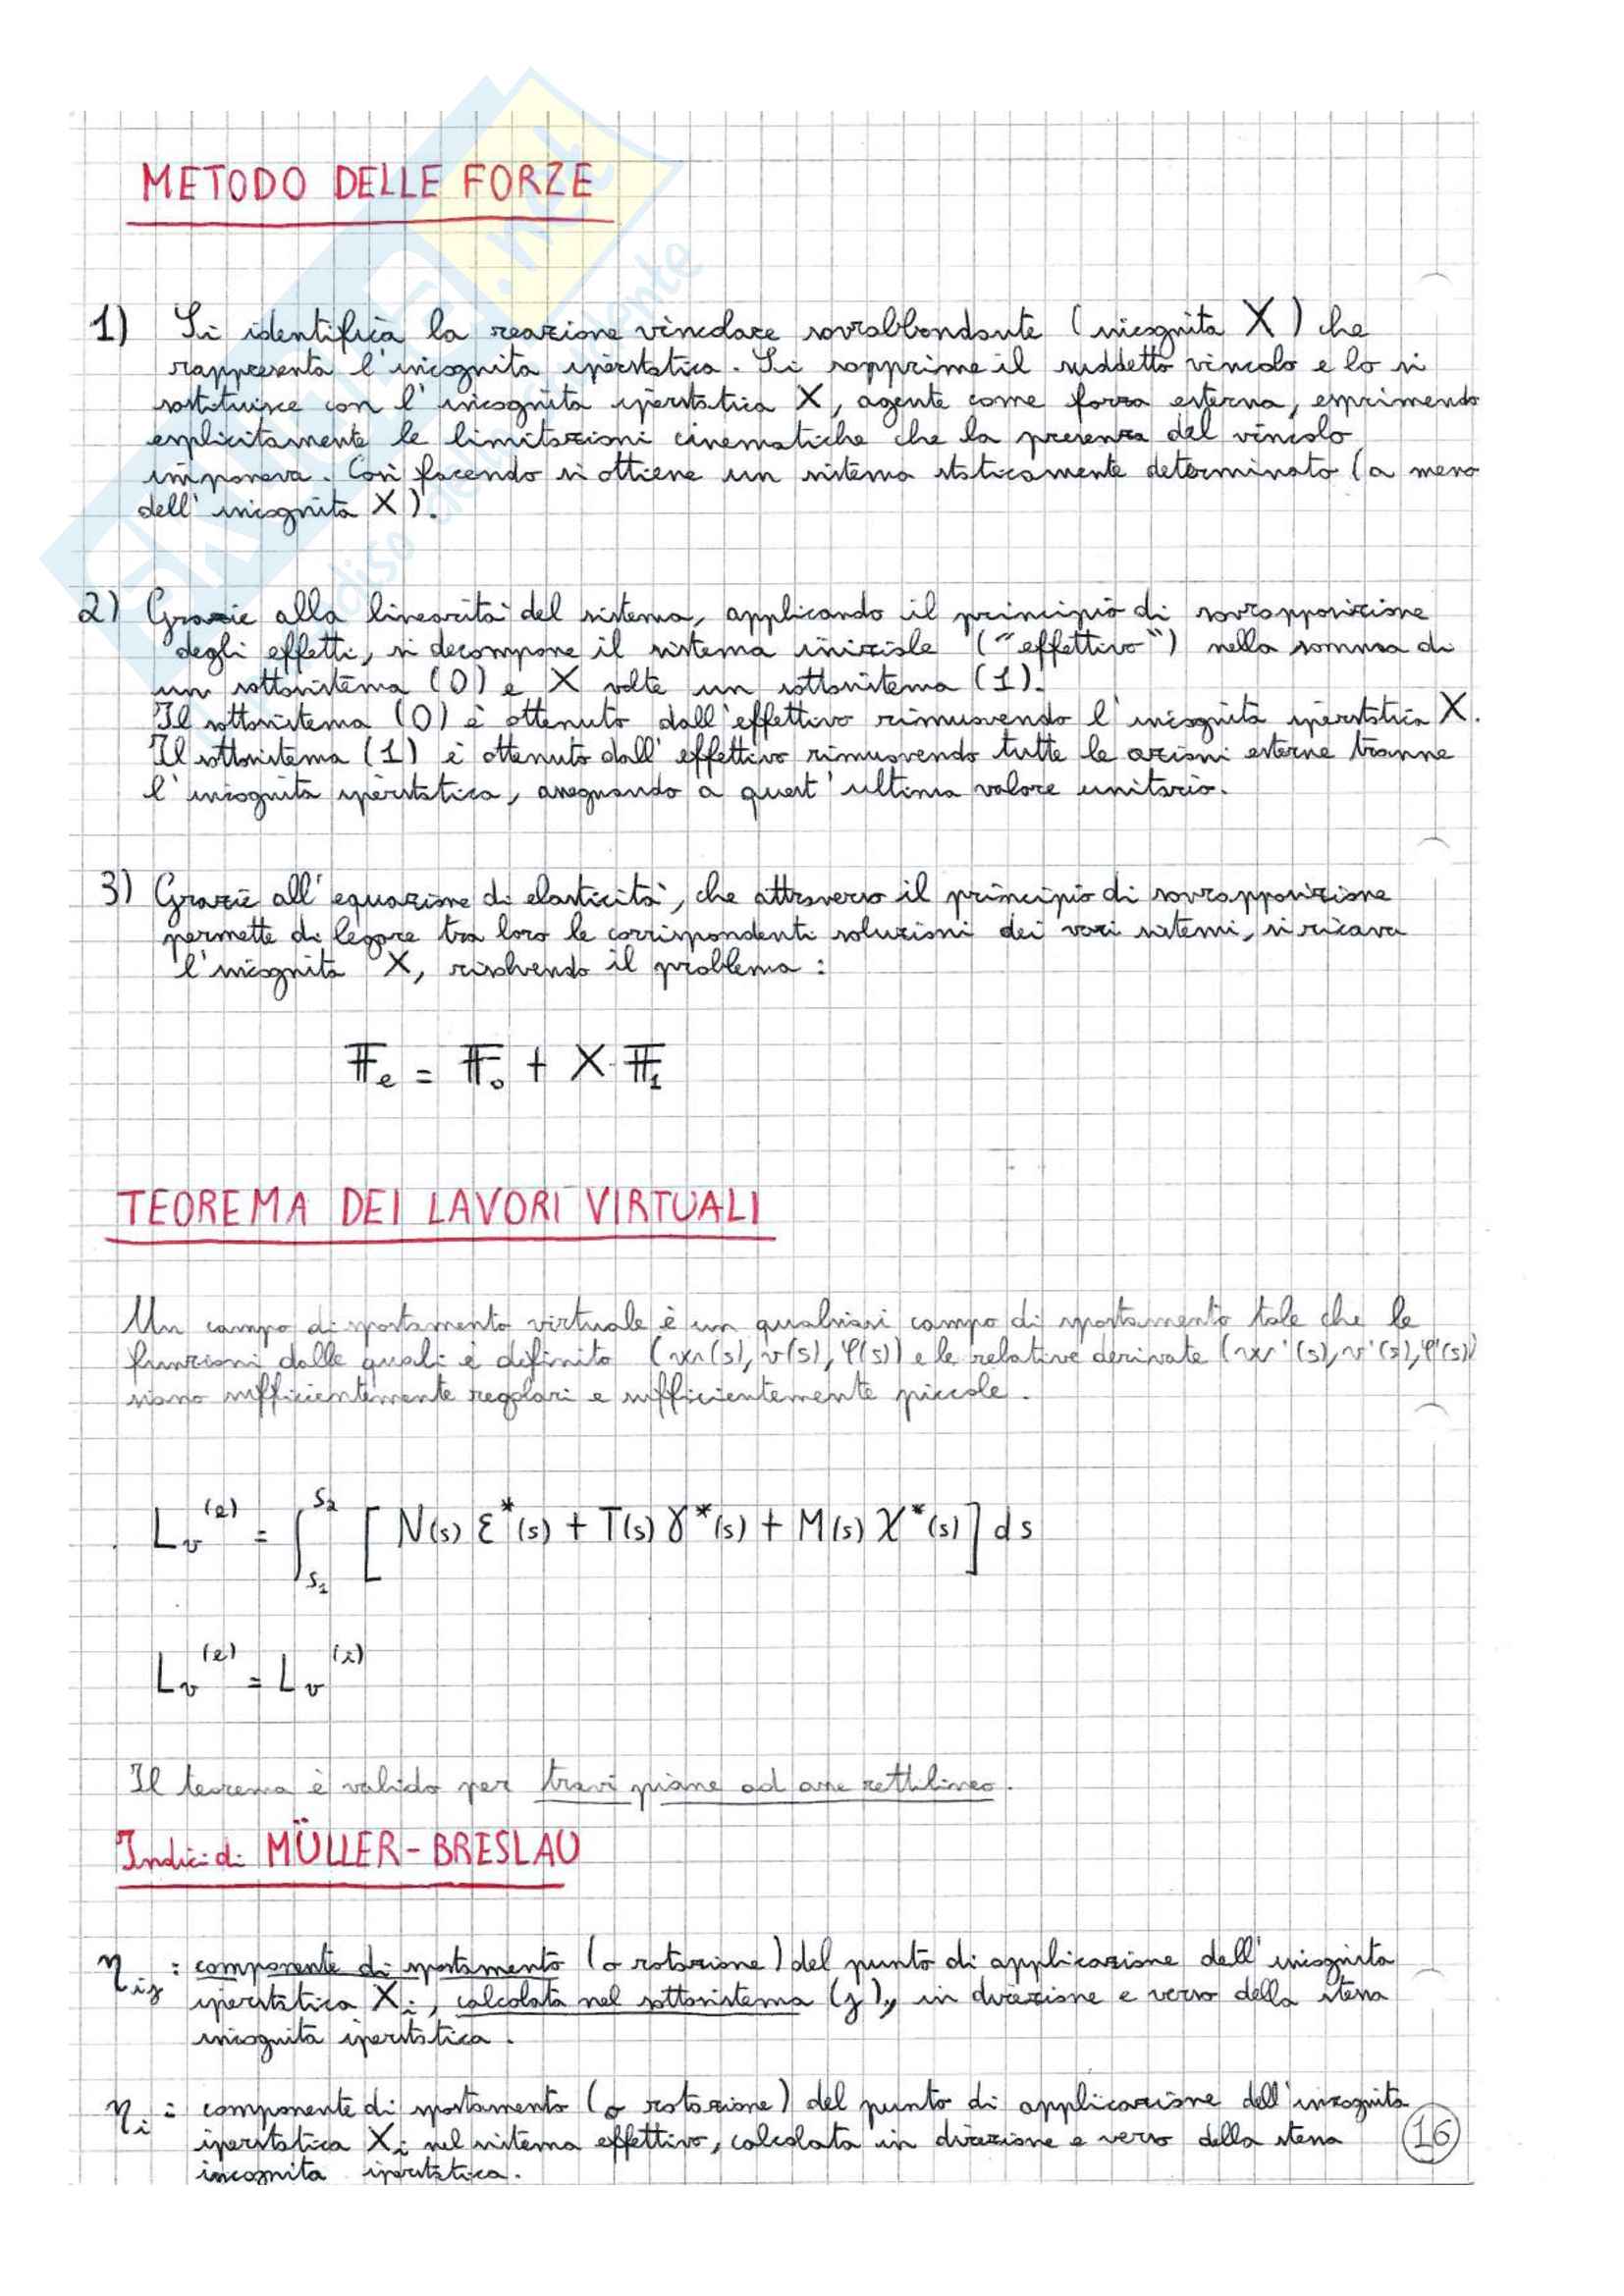 METODO DELLE FORZE
1) Si identifica la reazione vincolare sovrabbondante (incognita X) che
rappresenta l'incognita iperstatica. Si sopprime il suddetto vincolo e lo si
sostituisce con l'incognita iperstatica X, agente come forza esterna, esprimendo
esplicitamente le limitazioni cinematiche che la presenza del vincolo
imponeva. Così facendo si ottiene un sistema staticamente determinato (a meno
dell'incognita X).
2) Grazie alla linearità del sistema, applicando il principio di sovrapposizione
degli effetti, si decompone il sistema iniziale ("effettivo") nella somma di
un sottosistema (0) e X volte un sottosistema (1).
Il sottosistema (0) è ottenuto dall'effettivo rimuovendo l'incognita iperstatica X.
Il sottosistema (1) è ottenuto dall'effettivo rimuovendo tutte le azioni esterne tranne
l'incognita iperstatica, assegnando a quest'ultima valore unitario.
3) Grazie all'equazione di elasticità, che attraverso il principio di sovrapposizione
permette di legare tra loro le corrispondenti soluzioni dei vari sistemi, si ricava
l'incognita X, risolvendo il problema:
𝔽e = 𝔽₀ + X·𝔽₁
TEOREMA DEI LAVORI VIRTUALI
Un campo di spostamento virtuale è un qualsiasi campo di spostamento tale che le
funzioni dalle quali è definito (w(s), v(s), φ(s)) e le relative derivate (w'(s), v'(s), φ'(s))
siano sufficientemente regolari e sufficientemente piccole.
Lv^(e) = ∫_{s₁}^{s₂} [N(s) ε*(s) + T(s) γ*(s) + M(s) χ*(s)] ds
Lv^(e) = Lv^(i)
Il teorema è valido per travi piane ad asse rettilineo.
Indici di MÜLLER-BRESLAU
ηij : componente di spostamento (o rotazione) del punto di applicazione dell'incognita
iperstatica Xi, calcolata nel sottosistema (j), in direzione e verso della stessa
incognita iperstatica.
ηi : componente di spostamento (o rotazione) del punto di applicazione dell'incognita
iperstatica Xi nel sistema effettivo, calcolata in direzione e verso della stessa
incognita iperstatica.
16